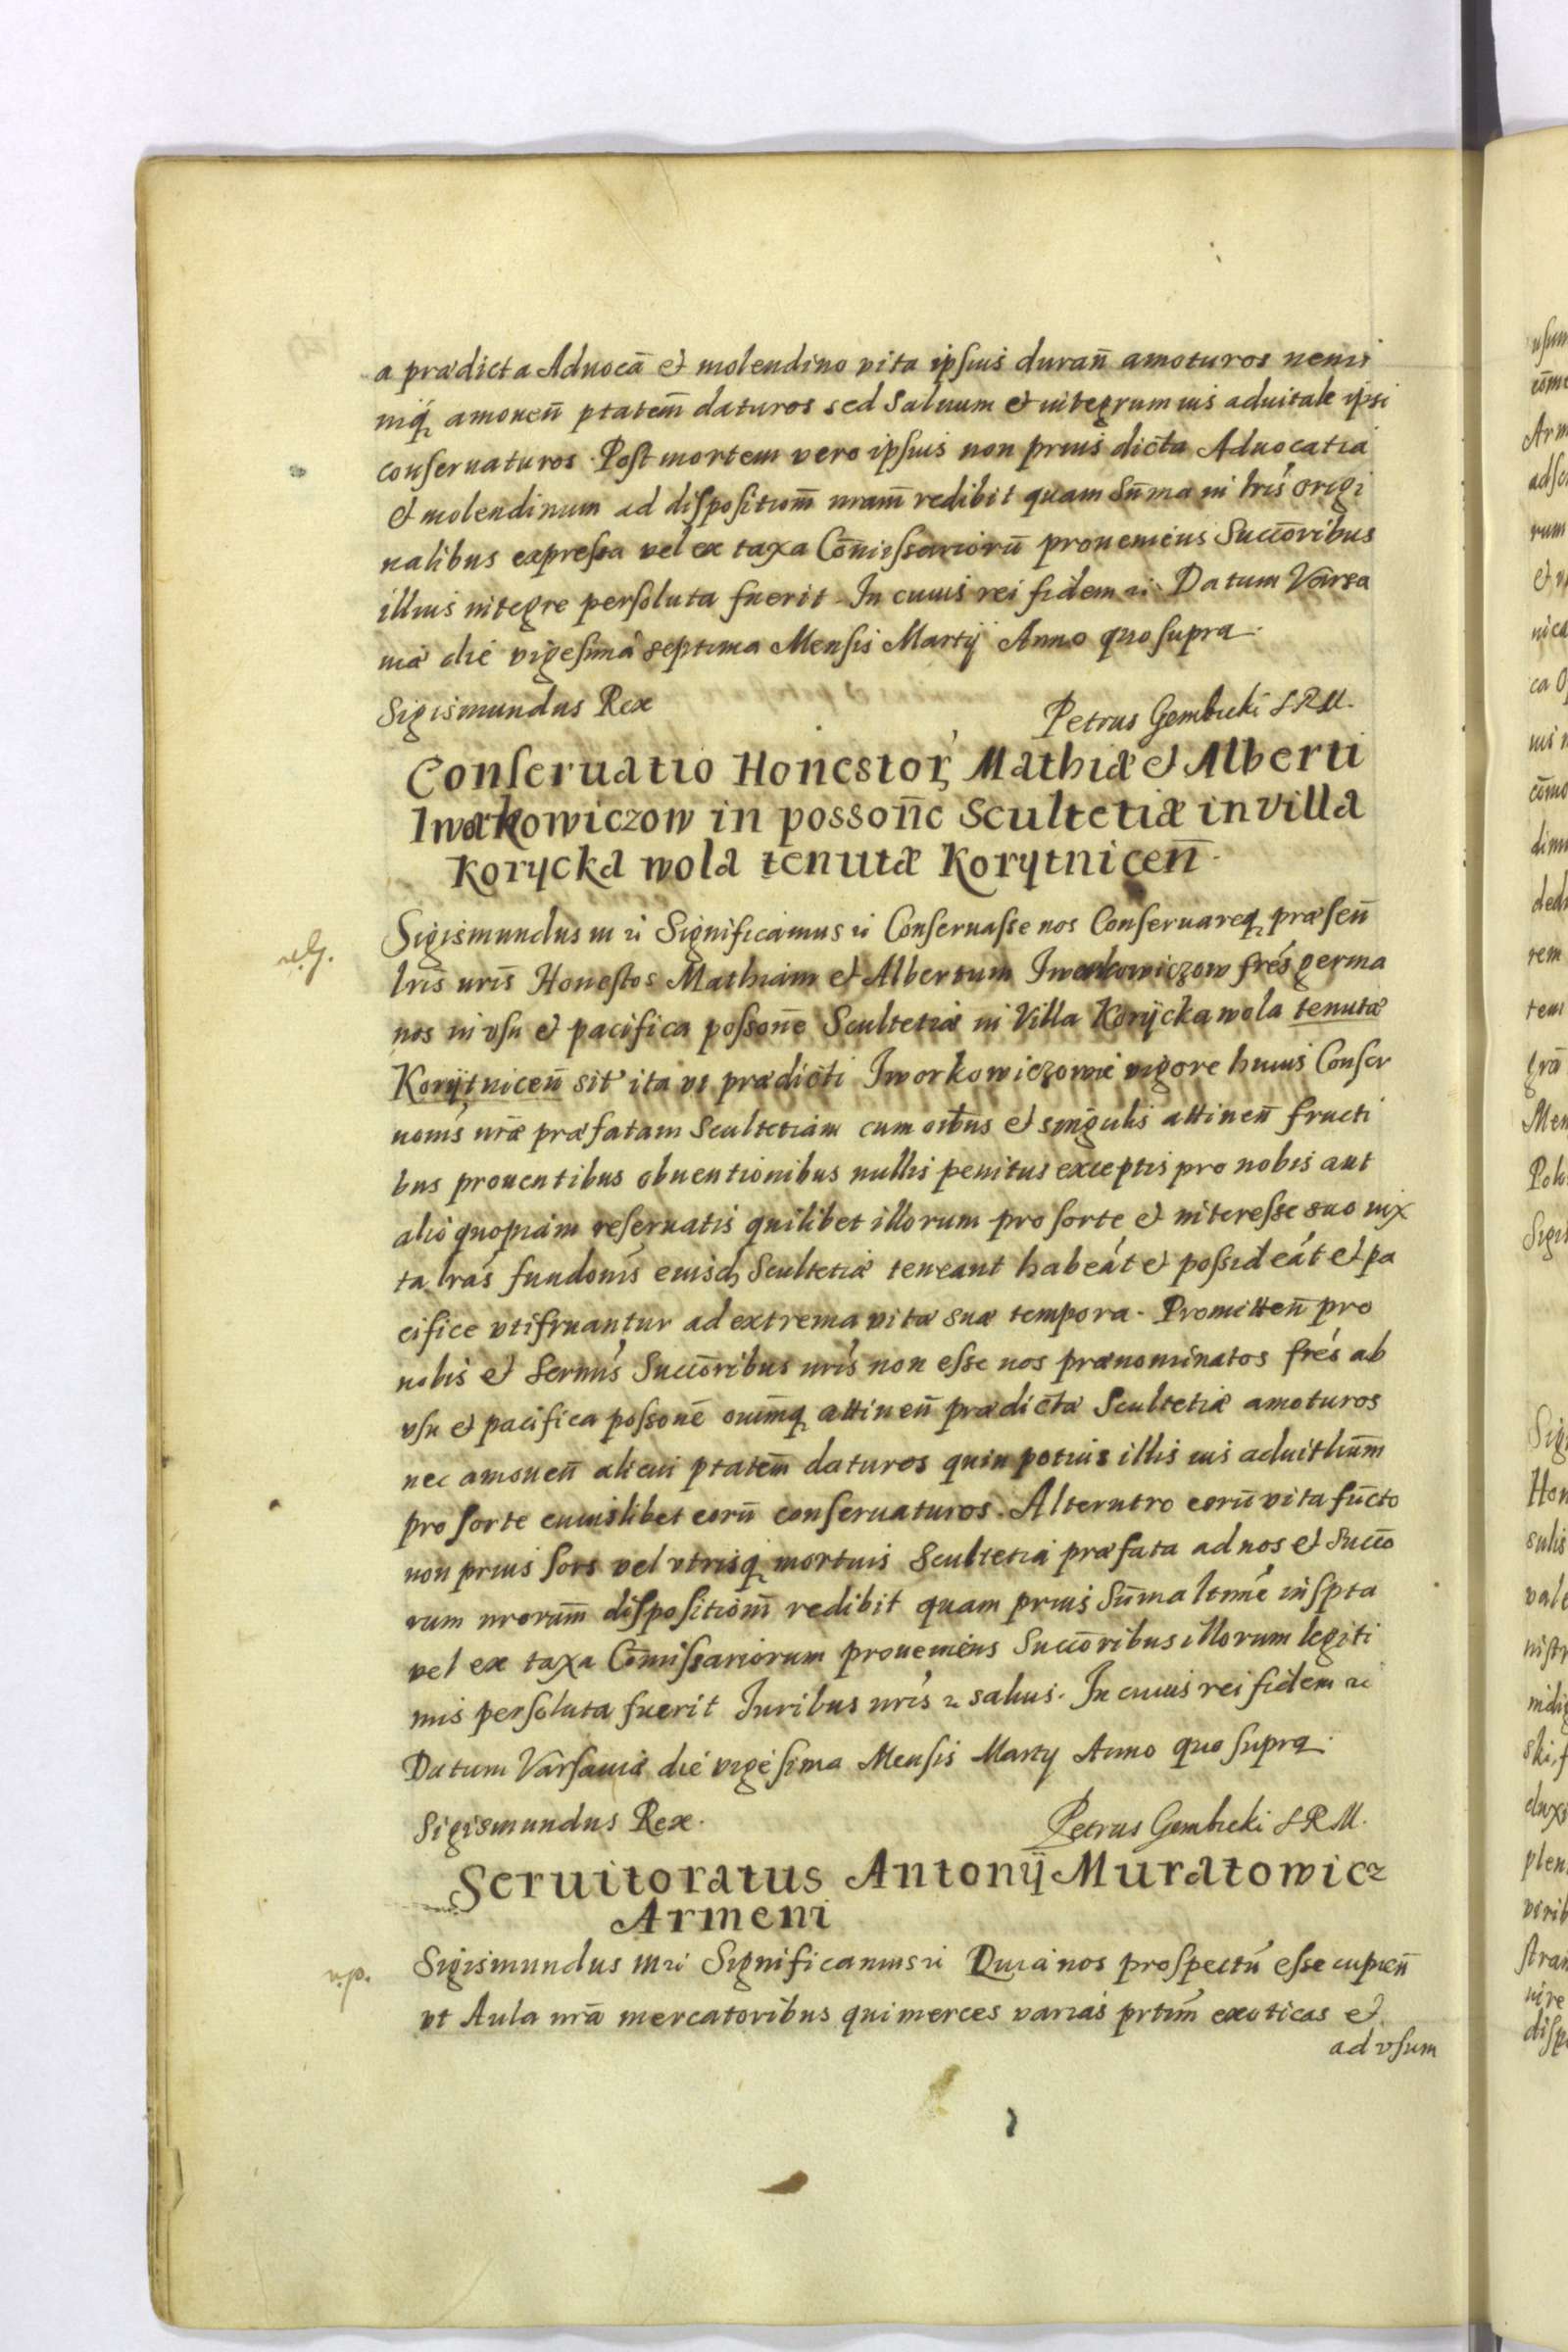 a prædicta Aduocā et molendino vita ipsius durañ amoturos nemi
niq; amoueñ ptatem̃ daturos sed Saluum et integrum ius aduitale ipsi
conseruaturos. Post mortem vero ipsius non prius dicta Aduocatia
et molendinum ad dispositiom̃ nram̃ redibit quam Sum̃a in lris̃ origi
nalibus expressa vel ex taxa Com̃issariorũ proueniens Succoribus
illius integre persoluta fuerit. In cuius rei fidem ꝛc. Datum Varsa
uiæ die vigesima septima Mensis Martij Anno quo supra.
Sigismundus Rex
Petrus Gembicki S R M.
Conseruatio Honestor; Mathiæ et Alberti
Iwarkowiczow in possoñe Scultetiæ in villa
Korycka wola tenutæ Korytniceñ.
Sigismundus III ꝛc Significamus ꝛc Conseruasse nos Conseruareq; præseñ
lris̃ nris̃ Honestos Mathiam et Albertum Iworkowiczow fres̃ germa
nos in vsu et pacifica possoñe Scultetiæ in Villa Korycka wola tenutæ
Korytniceñ sit' ita vt prædicti Iworkowiczowie vigore huius Conser
uonis̃ nræ̃ præfatam Scultetiam cum oib̃us et singulis attineñ fructi
bus prouentibus obuentionibus nullis penitus exceptis pro nobis aut
alio quopiam reseruatis quilibet illorum pro sorte et interesse suo iux
ta lras̃ fundonis̃ eiusd; Scultetiæ teneant habeãt et possideãt et pa
cifice vtifruantur ad extrema vitæ suæ tempora. Promitteñ pro
nobis et Sermis̃ Succoribus nris̃ non esse nos prænominatos fres̃ ab
vsu et pacifica possoñe ouim̃q; attineñ prædictæ Scultetiæ amoturos
nec amoueñ alicui ptatem̃ daturos quin potius illis ius aduitliũm
pro sorte cuiuslibet eorũ conseruaturos. Alterutro eorũ vita fũcto
non prius sors vel vtrisq; mortuis Scultetia præfata ad nos et Succo
rum nrorum̃ dispositiom̃ redibit quam prius Sum̃a ltime inspta
vel ex taxa Com̃issariorum proueniens Succoribus illorum legiti
mis persoluta fuerit Iuribus nris̃ ꝛc saluis. In cuius rei fidem ꝛc
Datum Varsauiæ die vigesima Mensis Martij Anno quo supra.
Sigismundus Rex.
Petrus Gembicki S R M.
Seruitoratus Antonij Muratowicz
Armeni
Sigismundus III ꝛc Significamus ꝛc Quia nos prospectũ esse cupieñ
vt Aula nrã mercatoribus qui merces varias prtim̃ exoticas et
ad vsum